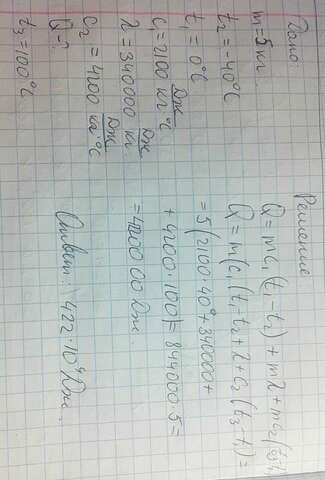 Дано
m=5кг.
t₂=-40°C
t₁=0°C
c₁=2100 Дж/кг°C
λ=340000 Дж/кг.
c₂=4200 Дж/кг°C
Q-?
t₃=100°C
Решение
Q=mc₁(t₁-t₂)+mλ+mc₂(t₃-t₁)
Q=m(c₁(t₁-t₂+λ+c₂(t₃-t₁)=
=5(2100·40°+340000+
+4200·100)=844000·5=
Ответ: 422·10⁴Дж.